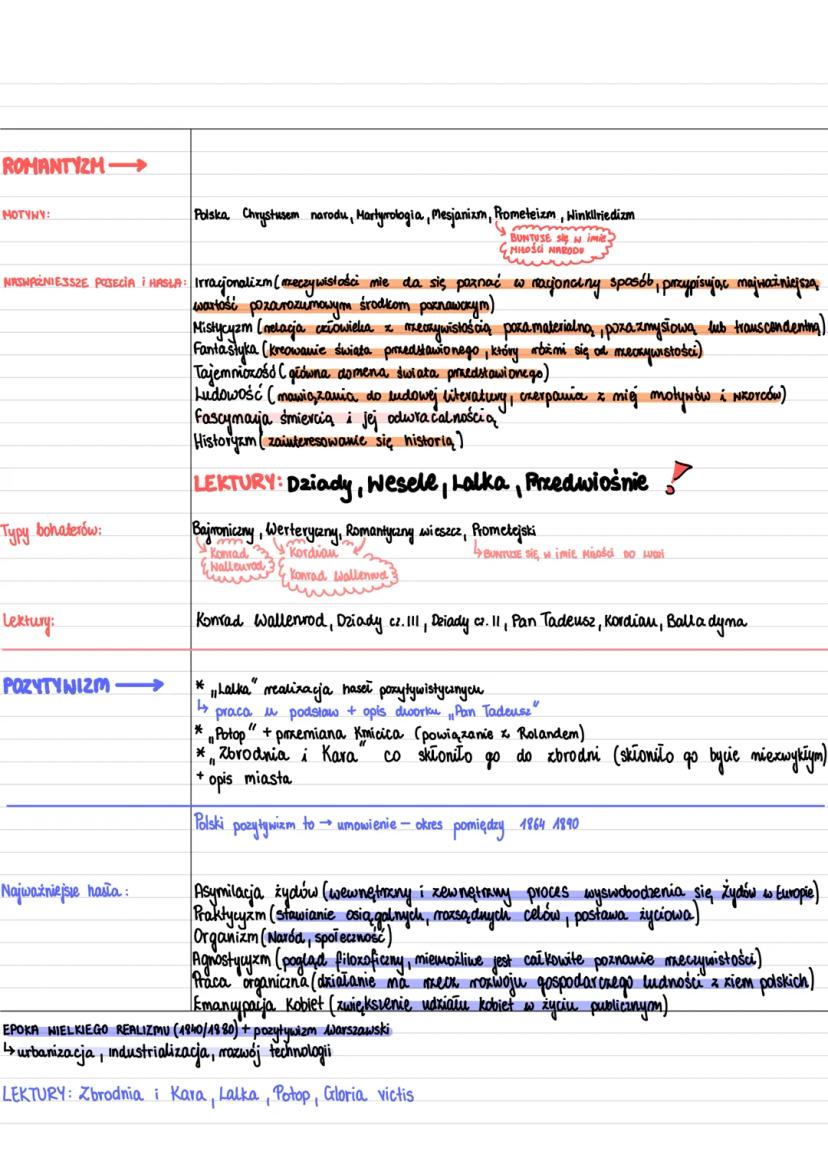 ROMANTYZM →
MOTYWY: Polska Chrystusem narodu, Martyrologia, Mesjanizm, Prometeizm, Winkllriedizm
↳ BUNTUJE SIĘ W imię MIŁOŚCI NARODU
NAJWAŻNIEJSZE POJĘCIA i HASŁA: Irracjonalizm (rzeczywistości nie da się poznać w racjonalny sposób, przypisując najważniejszą
wartość pozarozumowym środkom poznawczym)
Mistycyzm (relacja człowieka z rzeczywistością pozamaterialną, pozazmysłową lub transcendentną)
Fantastyka (kreowanie świata przedstawionego, który różni się od rzeczywistości)
Tajemniczość (główna domena świata przedstawionego)
Ludowość (nawiązania do ludowej literatury, czerpania z niej motywów i wzorców)
Fascynacja śmiercią i jej odwracalnością
Historyzm (zainteresowanie się historią)
LEKTURY: Dziady, Wesele, Lalka, Przedwiośnie !
Typy bohaterów: Bajroniczny, Werteryczny, Romantyczny wieszcz, Prometejski
↳ Konrad Wallenrod
↳ Kordian
Konrad Wallenrod
↳ BUNTUJE SIĘ, W IMIĘ MIŁOŚCI DO LUDZI
Lektury: Konrad Wallenrod, Dziady cz. III, Dziady cz. II, Pan Tadeusz, Kordian, Balladyna
POZYTYWIZM →
* „Lalka" realizacja haseł pozytywistycznych
↳ praca u podstaw + opis dworku „Pan Tadeusz"
* „Potop" + przemiana Kmicica (powiązanie z Rolandem)
* „Zbrodnia i Kara" co skłoniło go do zbrodni (skłoniło go bycie niezwykłym)
+ opis miasta
Polski pozytywizm to → umowienie – okres pomiędzy 1864 1890
Najważniejsze hasła: Asymilacja żydów (wewnętrzny i zewnętrzny proces wyswobodzenia się Żydów w Europie)
Praktycyzm (stawianie osiągalnych, rozsądnych celów, postawa życiowa)
Organizm (Naród, społeczność)
Agnostycyzm (pogląd filozoficzny, niemożliwe jest całkowite poznanie rzeczywistości)
Praca organiczna (działanie na rzecz rozwoju gospodarczego ludności z ziem polskich)
Emancypacja Kobiet (zwiększenie udziału kobiet w życiu publicznym)
EPOKA WIELKIEGO REALIZMU (1840/1880) + pozytywizm Warszawski
↳ urbanizacja, industrializacja, rozwój technologii
LEKTURY: Zbrodnia i Kara, Lalka, Potop, Gloria victis